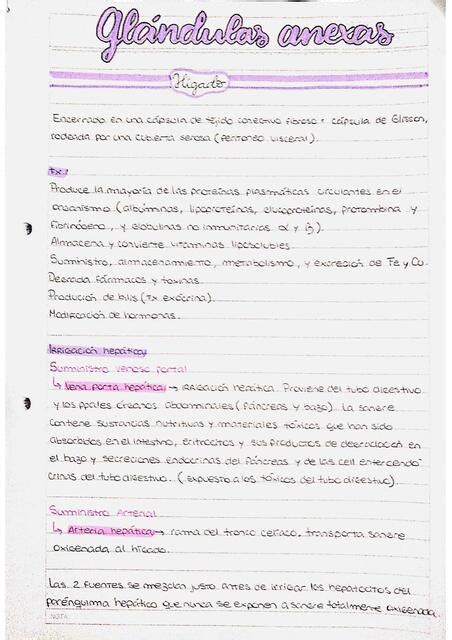 Glándulas anexas
Hígado
Encerrado en una cápsula de tejido conectivo fibroso: cápsula de Glisson,
rodeada por una cubierta serosa (peritoneo visceral).
Fx:
Produce la mayoría de las proteínas plasmáticas circulantes en el
organismo (albúminas, lipoproteínas, glucoproteínas, protombina y
fibrinógeno, y globulinas no inmunitarias α y β).
Almacena y convierte vitaminas liposolubles.
Suministro, almacenamiento, metabolismo, y excreción de Fe y Cu.
Degrada fármacos y toxinas.
Producción de bilis (Fx exócrina).
Modificación de hormonas.
Irrigación hepática
Suministro venoso portal
↳ Vena porta hepática → irrigación hepática. Proviene del tubo digestivo
y los ppales órganos abdominales (páncreas y bazo). La sangre
contiene sustancias nutritivas y materiales tóxicos que han sido
absorbidos en el intestino, eritrocitos y sus productos de degradación en
el bazo y secreciones endocrinas del páncreas y de las cell enteroendó
crinas del tubo digestivo. (Expuesto a los tóxicos del tubo digestivo).
Suministro Arterial
↳ Arteria hepática → rama del tronco celíaco, transporta sangre
oxigenada al hígado.
Las 2 fuentes se mezclan justo antes de irrigar los hepatocitos del
parénquima hepático que nunca se exponen a sangre totalmente oxigenada.
NOTA